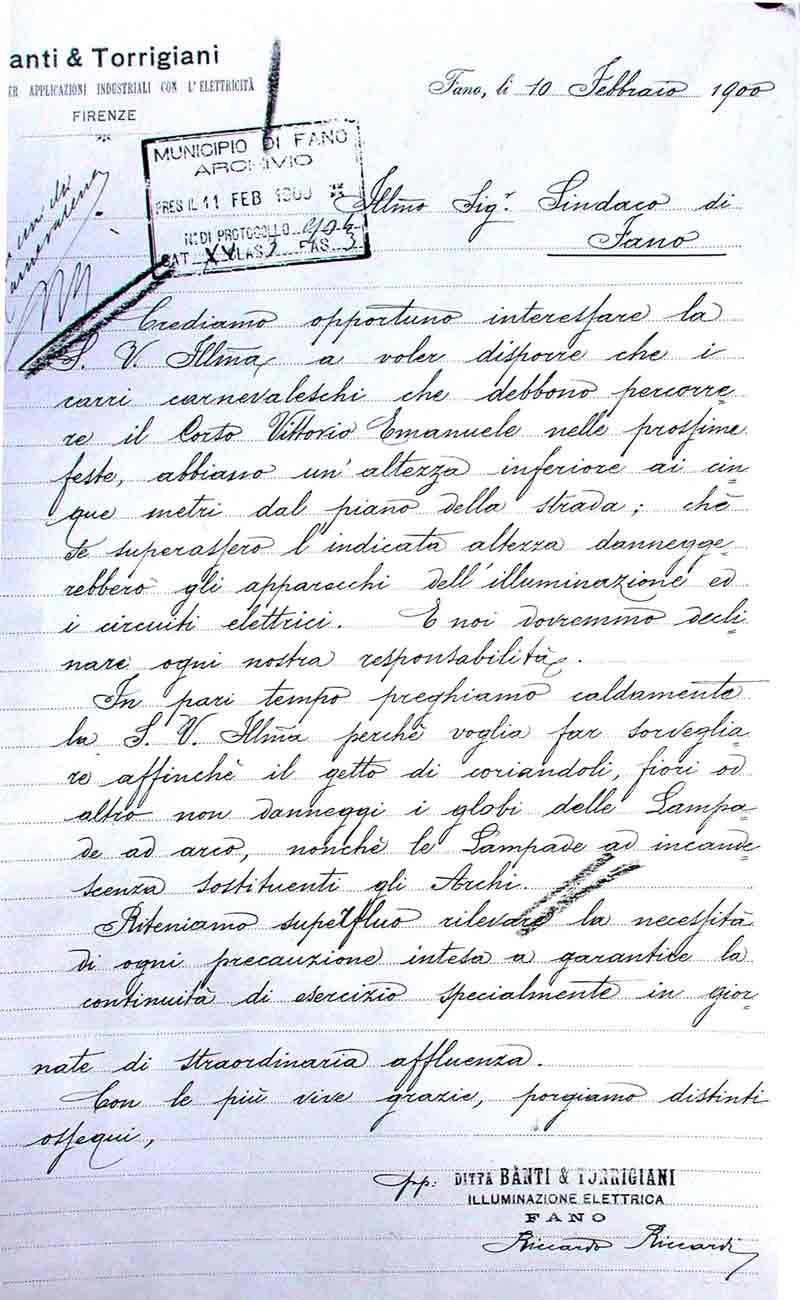 anti & Torrigiani
ER APPLICAZIONI INDUSTRIALI CON L'ELETTRICITÀ
FIRENZE
Fano, li 10 Febbraio 1900
MUNICIPIO DI FANO
ARCHIVIO
PRES IL 11 FEB 1900
N° DI PROTOCOLLO
CAT. XV CLAS 3 FAS. 3
Illmo Sigr. Sindaco di
Fano
Crediamo opportuno interessare la
S. V. Illma a voler disporre che i
carri carnevaleschi che debbono percorre=
re il Corso Vittorio Emanuele nelle prossime
feste, abbiano un'altezza inferiore ai cin=
que metri dal piano della strada; chè
se superassero l'indicata altezza dannegge=
rebbero gli apparecchi dell'illuminazione ed
i circuiti elettrici. E noi dovremmo decli=
nare ogni nostra responsabilità.
In pari tempo preghiamo caldamente
la S. V. Illma perchè voglia far sorveglia=
re affinchè il getto di coriandoli, fiori od
altro non danneggi i globi delle Lampa=
de ad arco, nonchè le Lampade ad incande=
scenza sostituenti gli Archi.
Riteniamo superfluo rilevare la necessità
di ogni precauzione intesa a garantire la
continuità di esercizio specialmente in gior=
nate di straordinaria affluenza.
Con le più vive grazie, porgiamo distinti
ossequi,
pp: DITTA BANTI & TORRIGIANI
ILLUMINAZIONE ELETTRICA
FANO
Riccardo Riccardi